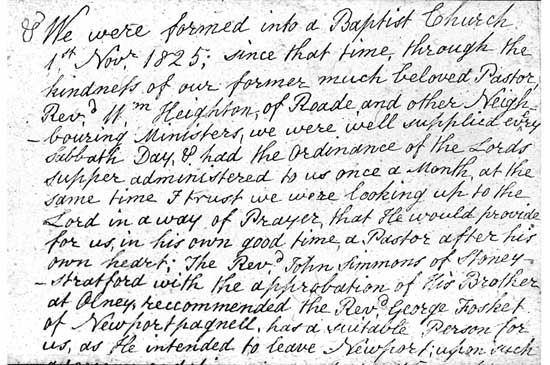 & We were formed into a Baptist Church
1st Novr. 1825; since that time, through the
kindness of our former much beloved Pastor,
Revd. Wm. Heighton, of Roade and other Neigh-
-bouring Ministers, we were well supplied every
Sabbath Day, & had the Ordinance of the Lords
supper administered to us once a Month, at the
same time I trust we were looking up to the
Lord in a way of Prayer, that He would provide
for us, in his own good time, a Pastor after his
own heart; The Revd. John Simmons of Stoney-
-stratford with the approbation of His Brother
at Olney, reccommended the Revd. George Fosket
of Newportpagnell, has a suitable Person for
us, as He intended to leave Newport; upon such